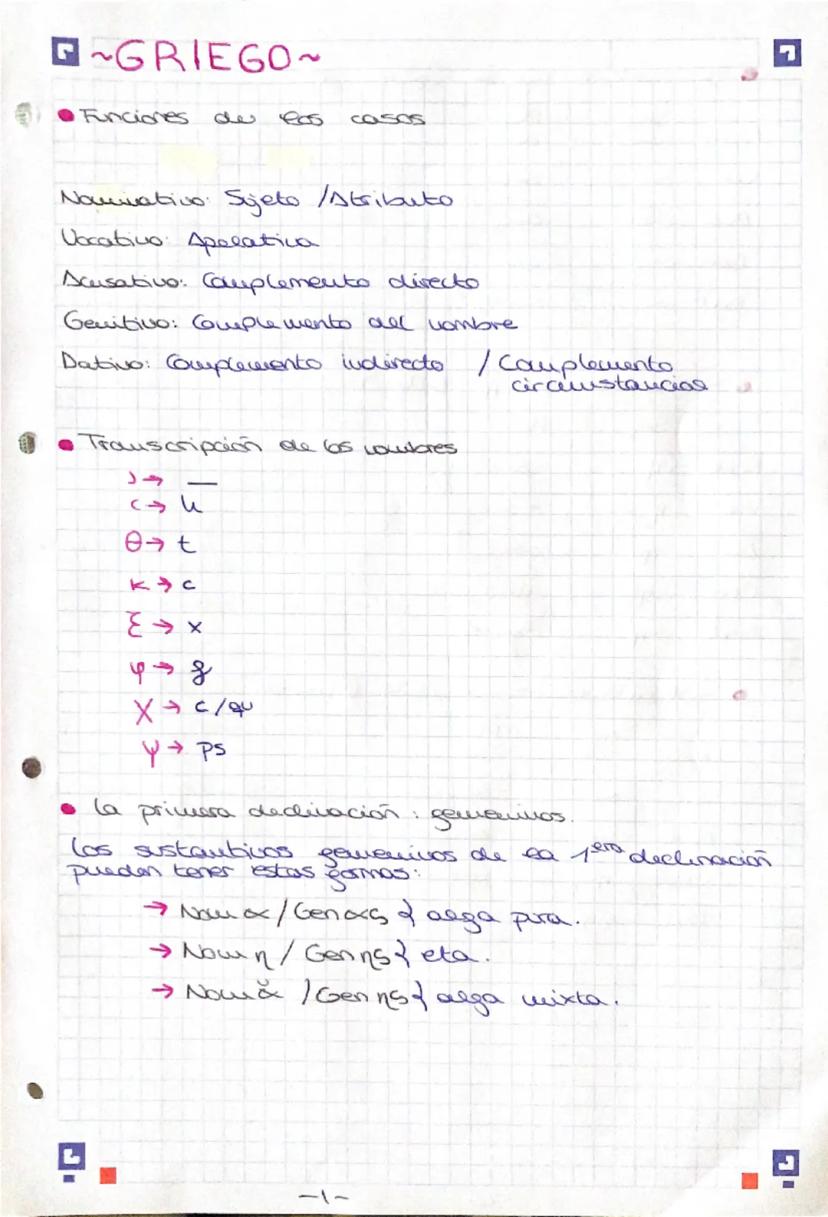 ~GRIEGO~
• Funciones de los casos
Nominativo: Sujeto / Atributo
Vocativo: Apelativa
Acusativo: Complemento directo
Genitivo: Complemento del nombre
Dativo: Complemento indirecto / Complemento
circunstancial
• Transcripción de los nombres
᾿ → —
῾ → h
θ → t
κ → c
ξ → x
φ → f
χ → c/qu
ψ → ps
• La primera declinación: femeninos.
Los sustantivos femeninos de la 1era declinación
pueden tener estas formas:
→ Nom α / Gen ας } alfa pura.
→ Nom η / Gen ης } eta.
→ Nom ᾰ / Gen ης } alfa mixta.
-1-